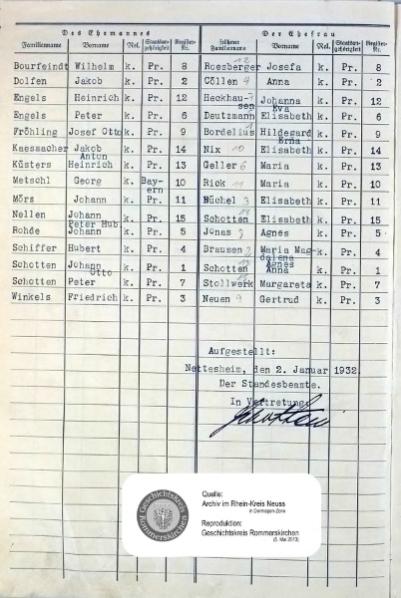 Des Ehemannes Der Ehefrau
Familienname Vorname Rel. Staatsan-gehörigkeit Register-Nr. Früherer Familienname Vorname Rel. Staatsan-gehörigkeit Register-Nr.
Bourfeindt Wilhelm k. Pr. 8 Roesberger 12 Josefa k. Pr. 8
Dolfen Jakob k. Pr. 2 Cöllen 4 Anna k. Pr. 2
Engels Heinrich k. Pr. 12 Heckhau-sen Johanna Eva k. Pr. 12
Engels Peter k. Pr. 6 Deutzmann Elisabeth k. Pr. 6
Fröhling Josef Otto k. Pr. 9 Bordelius Hildegard Erna k. Pr. 9
Kaesmacher Jakob Anton k. Pr. 14 Nix 10 Elisabeth k. Pr. 14
Küsters Heinrich k. Pr. 13 Geller 6 Maria k. Pr. 13
Metschl Georg k. Bay-ern 10 Rick 11 Maria k. Pr. 10
Mörs Johann k. Pr. 11 Büchel 3 Elisabeth k. Pr. 11
Nellen Johann Peter Hub. k. Pr. 15 Schotten Elisabeth k. Pr. 15
Rohde Johann k. Pr. 5 Jonas Agnes k. Pr. 5
Schiffer Hubert k. Pr. 4 Brausen Maria Mag-dalena k. Pr. 4
Schotten Johann Otto k. Pr. 1 Schotten Agnes Anna k. Pr. 1
Schotten Peter k. Pr. 7 Stollwerk Margareta k. Pr. 7
Winkels Friedrich k. Pr. 3 Neuen 9 Gertrud k. Pr. 3
Aufgestellt:
Nettesheim, den 2. Januar 1932.
Der Standesbeamte.
In Vertretung
Geschichtskreis Rommerskirchen
Quelle:
Archiv im Rhein-Kreis Neuss
in Dormagen-Zons
Reproduktion:
Geschichtskreis Rommerskirchen